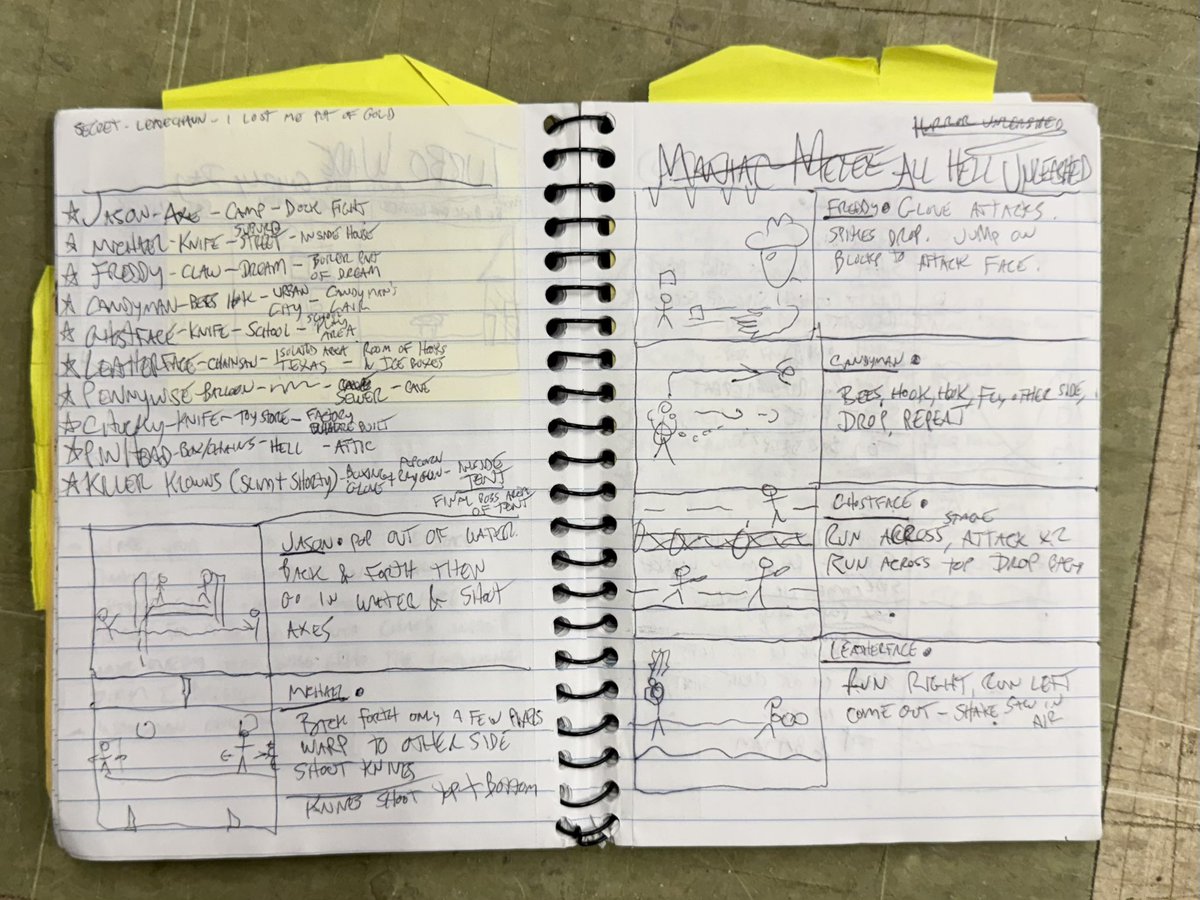 SECRET - LEPRECHAUN - I LOST ME POT OF GOLD
JASON - AXE - CAMP - DOCK FIGHT
MICHAEL - KNIFE - SUBURB STREET - INSIDE HOUSE
FREDDY - CLAW - DREAM - BOILER PART OF DREAM
CANDYMAN - BEES HOOK - URBAN CITY - CANDYMAN'S LAIR
GHOSTFACE - KNIFE - SCHOOL - SCHOOL PLAY AREA
LEATHERFACE - CHAINSAW - ISOLATED AREA TEXAS - ROOM OF HOOKS & ICE BOXES
PENNYWISE - BALLOON - SEWER - CAVE
CHUCKY - KNIFE - TOY STORE - FACTORY BUILT
PINHEAD - BOX/CHAINS - HELL - ATTIC
KILLER KLOWNS (SLIM + SHORTY) - BOXING GLOVE + POPCORN RAYGUN - INSIDE TENT
FINAL BOSS AREA OF TENT
JASON • POP OUT OF WATER.
BACK & FORTH THEN
GO IN WATER & SHOOT
AXES
MICHAEL •
BACK FORTH ONLY A FEW PIXELS
WARP TO OTHER SIDE
SHOOT KNIVES
KNIVES SHOOT TOP + BOTTOM
HORROR UNLEASHED
MANIAC MELEE ALL HELL UNLEASHED
FREDDY • GLOVE ATTACKS.
SPIKES DROP. JUMP ON
BLOCKS TO ATTACK FACE.
CANDYMAN •
BEES, HOOK, HOOK, FLY, OTHER SIDE,
DROP, REPEAT
GHOSTFACE •
RUN ACROSS STAGE, ATTACK X2
RUN ACROSS TOP DROP BACK
LEATHERFACE •
RUN RIGHT, RUN LEFT
COME OUT - SHAKE SAW IN AIR